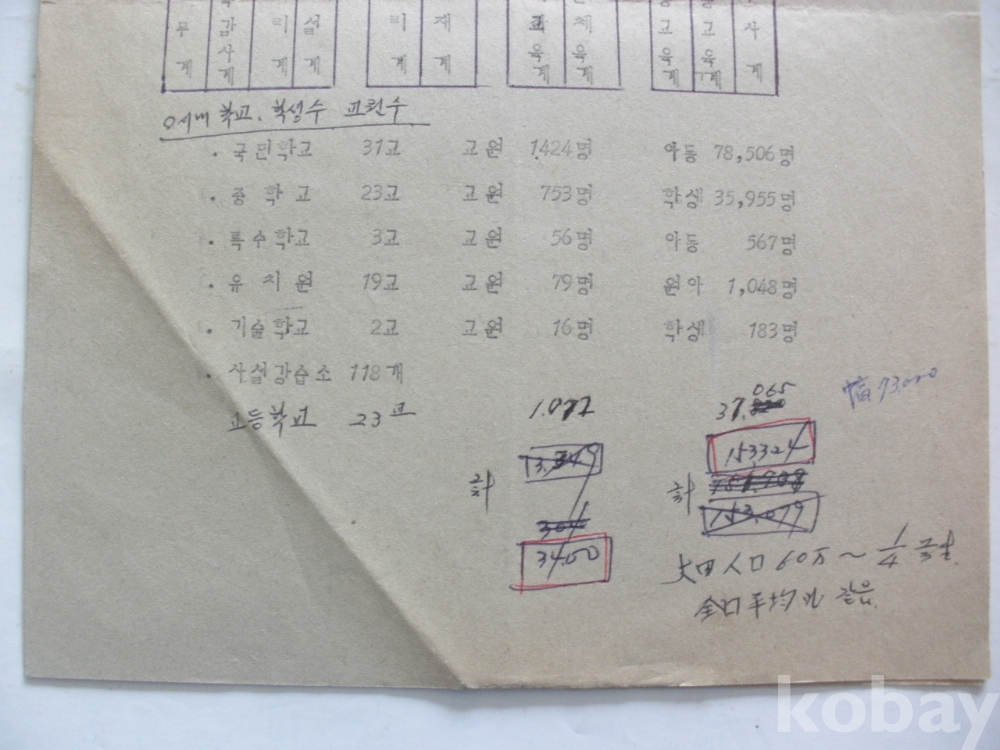 무계 감사계 리계 설계 리계 재계 교육계 체육계 고육계 고육계 사계
○시내 학교, 학생수 교원수
· 국민학교 31교 고원 1,424명 아동 78,506명
· 중학교 23교 고원 753명 학생 35,955명
· 특수학교 3교 고원 56명 아동 567명
· 유치원 19교 고원 79명 원아 1,048명
· 기술학교 2교 고원 16명 학생 183명
· 사설강습소 118개
고등학교 23교 1.072 37.065
73.000
153324
계 13.349 계
153.079
3400
大田人口 60万~ 1/4
平均
kobay